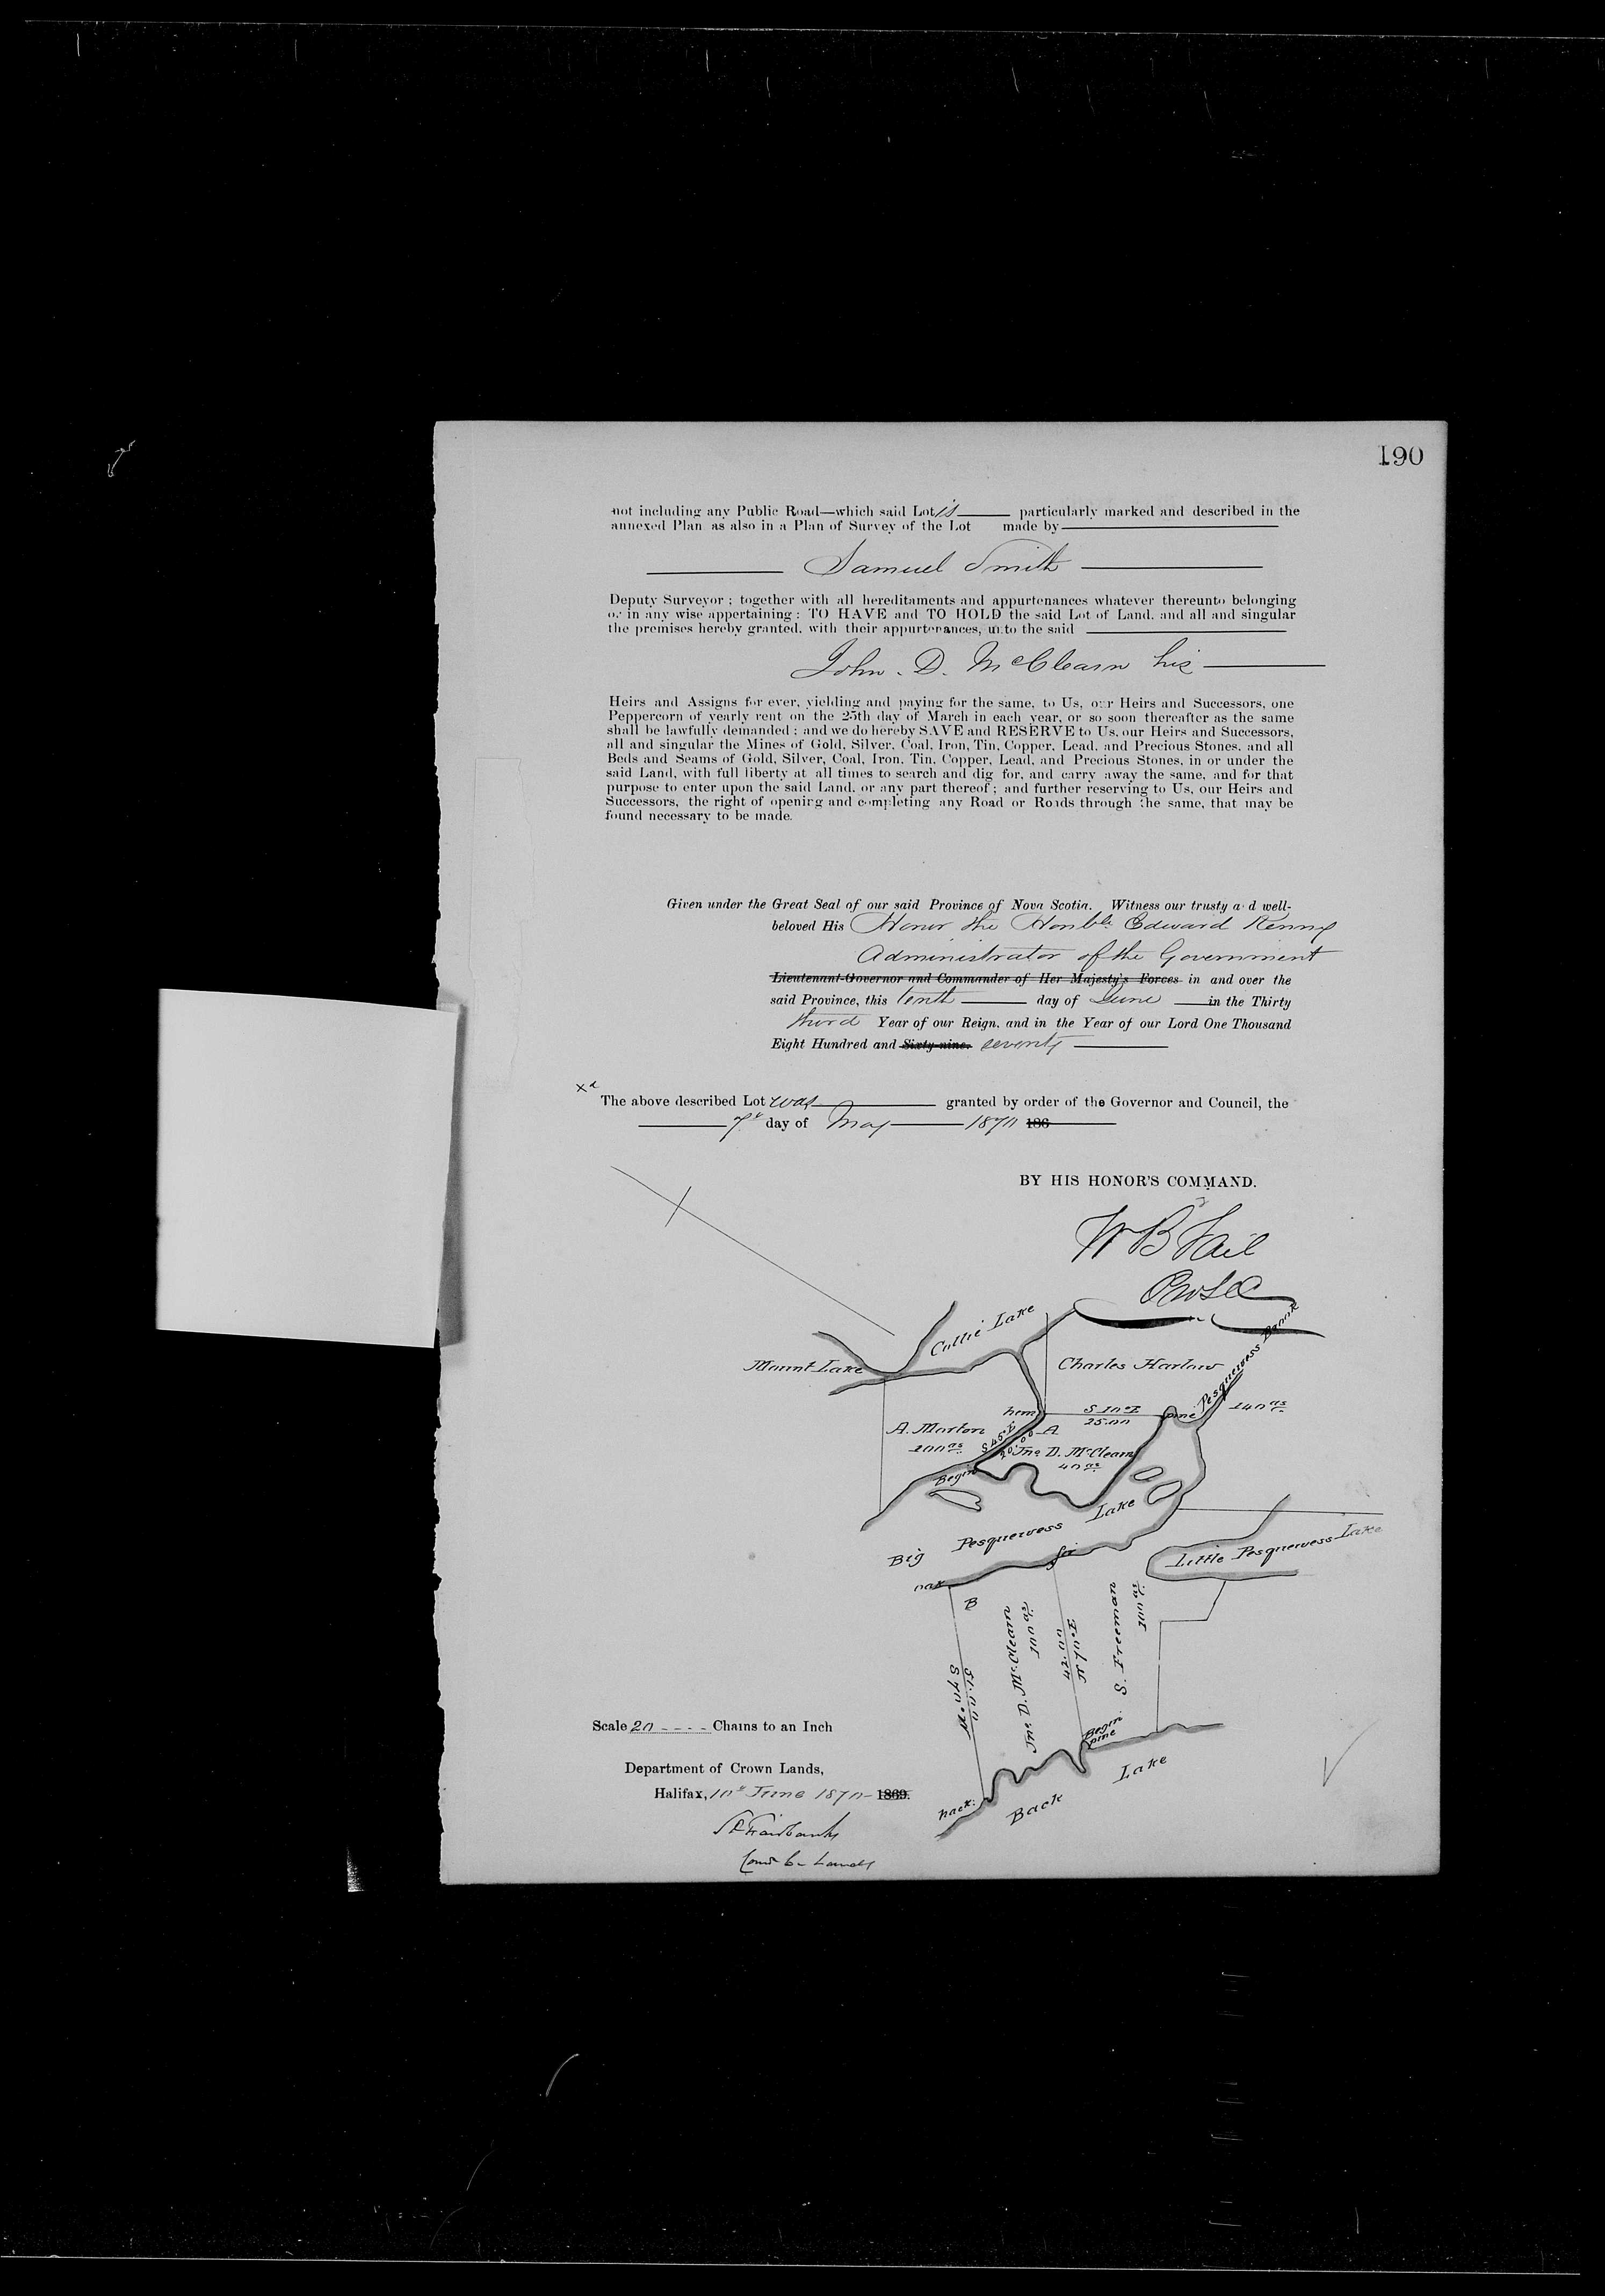 190
not including any Public Road—which said Lot is particularly marked and described in the
annexed Plan as also in a Plan of Survey of the Lot made by
Samuel Smith
Deputy Surveyor ; together with all hereditaments and appurtenances whatever thereunto belonging
or in any wise appertaining : TO HAVE and TO HOLD the said Lot of Land, and all and singular
the premises hereby granted, with their appurtenances, unto the said
John. D. McClearn his
Heirs and Assigns for ever, yielding and paying for the same, to Us, our Heirs and Successors, one
Peppercorn of yearly rent on the 25th day of March in each year, or so soon thereafter as the same
shall be lawfully demanded ; and we do hereby SAVE and RESERVE to Us, our Heirs and Successors,
all and singular the Mines of Gold, Silver, Coal, Iron, Tin, Copper, Lead, and Precious Stones, and all
Beds and Seams of Gold, Silver, Coal, Iron, Tin, Copper, Lead, and Precious Stones, in or under the
said Land, with full liberty at all times to search and dig for, and carry away the same, and for that
purpose to enter upon the said Land, or any part thereof ; and further reserving to Us, our Heirs and
Successors, the right of opening and completing any Road or Roads through the same, that may be
found necessary to be made.
Given under the Great Seal of our said Province of Nova Scotia. Witness our trusty a d well-
beloved His Honor the Honble Edward Kenny
Administrator of the Government
Lieutenant-Governor and Commander of Her Majesty's Forces in and over the
said Province, this tenth day of June in the Thirty
third Year of our Reign, and in the Year of our Lord One Thousand
Eight Hundred and Sixty-nine. seventy
The above described Lot was granted by order of the Governor and Council, the
7th day of May 1870 186
BY HIS HONOR'S COMMAND.
W B Vail
Mount Lake
Callie Lake
Charles Harlow
Pesquewess
140 as
hem
S 10° E
25.00
pine
A. Morton
200 as
S 45° E
20.00
A
Jno D. McClearn
40 as
Begin
Big Pesquewess Lake
Little Pesquewess Lake
oak
fir
B
S 70° W
51.00
Jno D. McClearn
100 as
42.00
N 70° E
S. Freeman
100 as
Begin
pine
hack:
Back Lake
Scale 20 Chains to an Inch
Department of Crown Lands,
Halifax, 10th June 1870 1869.
S P Fairbanks
Comr C. Lands